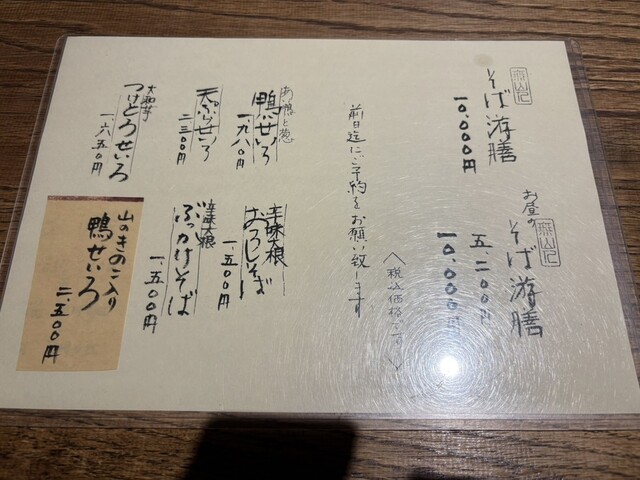 そば游膳
一〇、〇〇〇円
お昼の
そば游膳
五、二〇〇円
一〇、〇〇〇円
前日迄にご予約をお願い致します
〈税込価格です〉
あい鴨と葱
鴨せいろ
一、九八〇円
天ぷらせいろ
二二〇〇円
大和芋
つけとろせいろ
一、六五〇円
辛味大根
おろしそば
一、五〇〇円
辛味大根
ぶっかけそば
一、五〇〇円
山のきのこ入り
鴨せいろ
二、五〇〇円